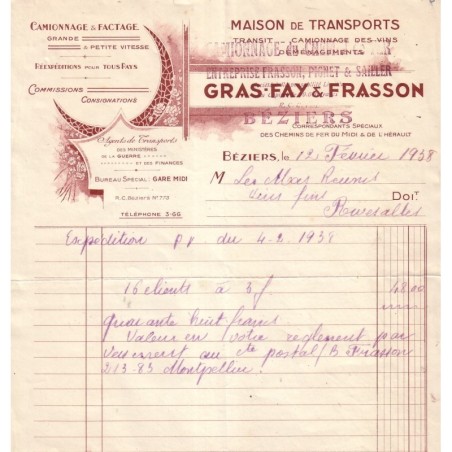 CAMIONNAGE & FACTAGE
GRANDE
& PETITE VITESSE
RÉEXPÉDITIONS POUR TOUS PAYS
COMMISSIONS
CONSIGNATIONS
Agents de Transports
DES MINISTÈRES
DE LA GUERRE
ET DES FINANCES
BUREAU SPÉCIAL: GARE MIDI
R.C. BÉZIERS Nº 773
TÉLÉPHONE 3-66
MAISON DE TRANSPORTS
TRANSIT CAMIONNAGE DES VINS
DÉMÉNAGEMENTS
CAMIONNAGE
ENTREPRISE FRASSON, PIGNET & SAHLER
GRAS-FAY & FRASSON
BÉZIERS
CORRESPONDANTS SPÉCIAUX
DES CHEMINS DE FER DU MIDI & DE L'HÉRAULT
BÉZIERS, LE 12 Février 1938
M Les Mxes Reunis
DOIT
Rivesaltes
Expédition p.v. du 4-2 1938
16 clients à 3f 48.00
Quarante huit francs
Valeur en votre règlement par
Virement au cte postal / B Frasson
213-83 Montpellier